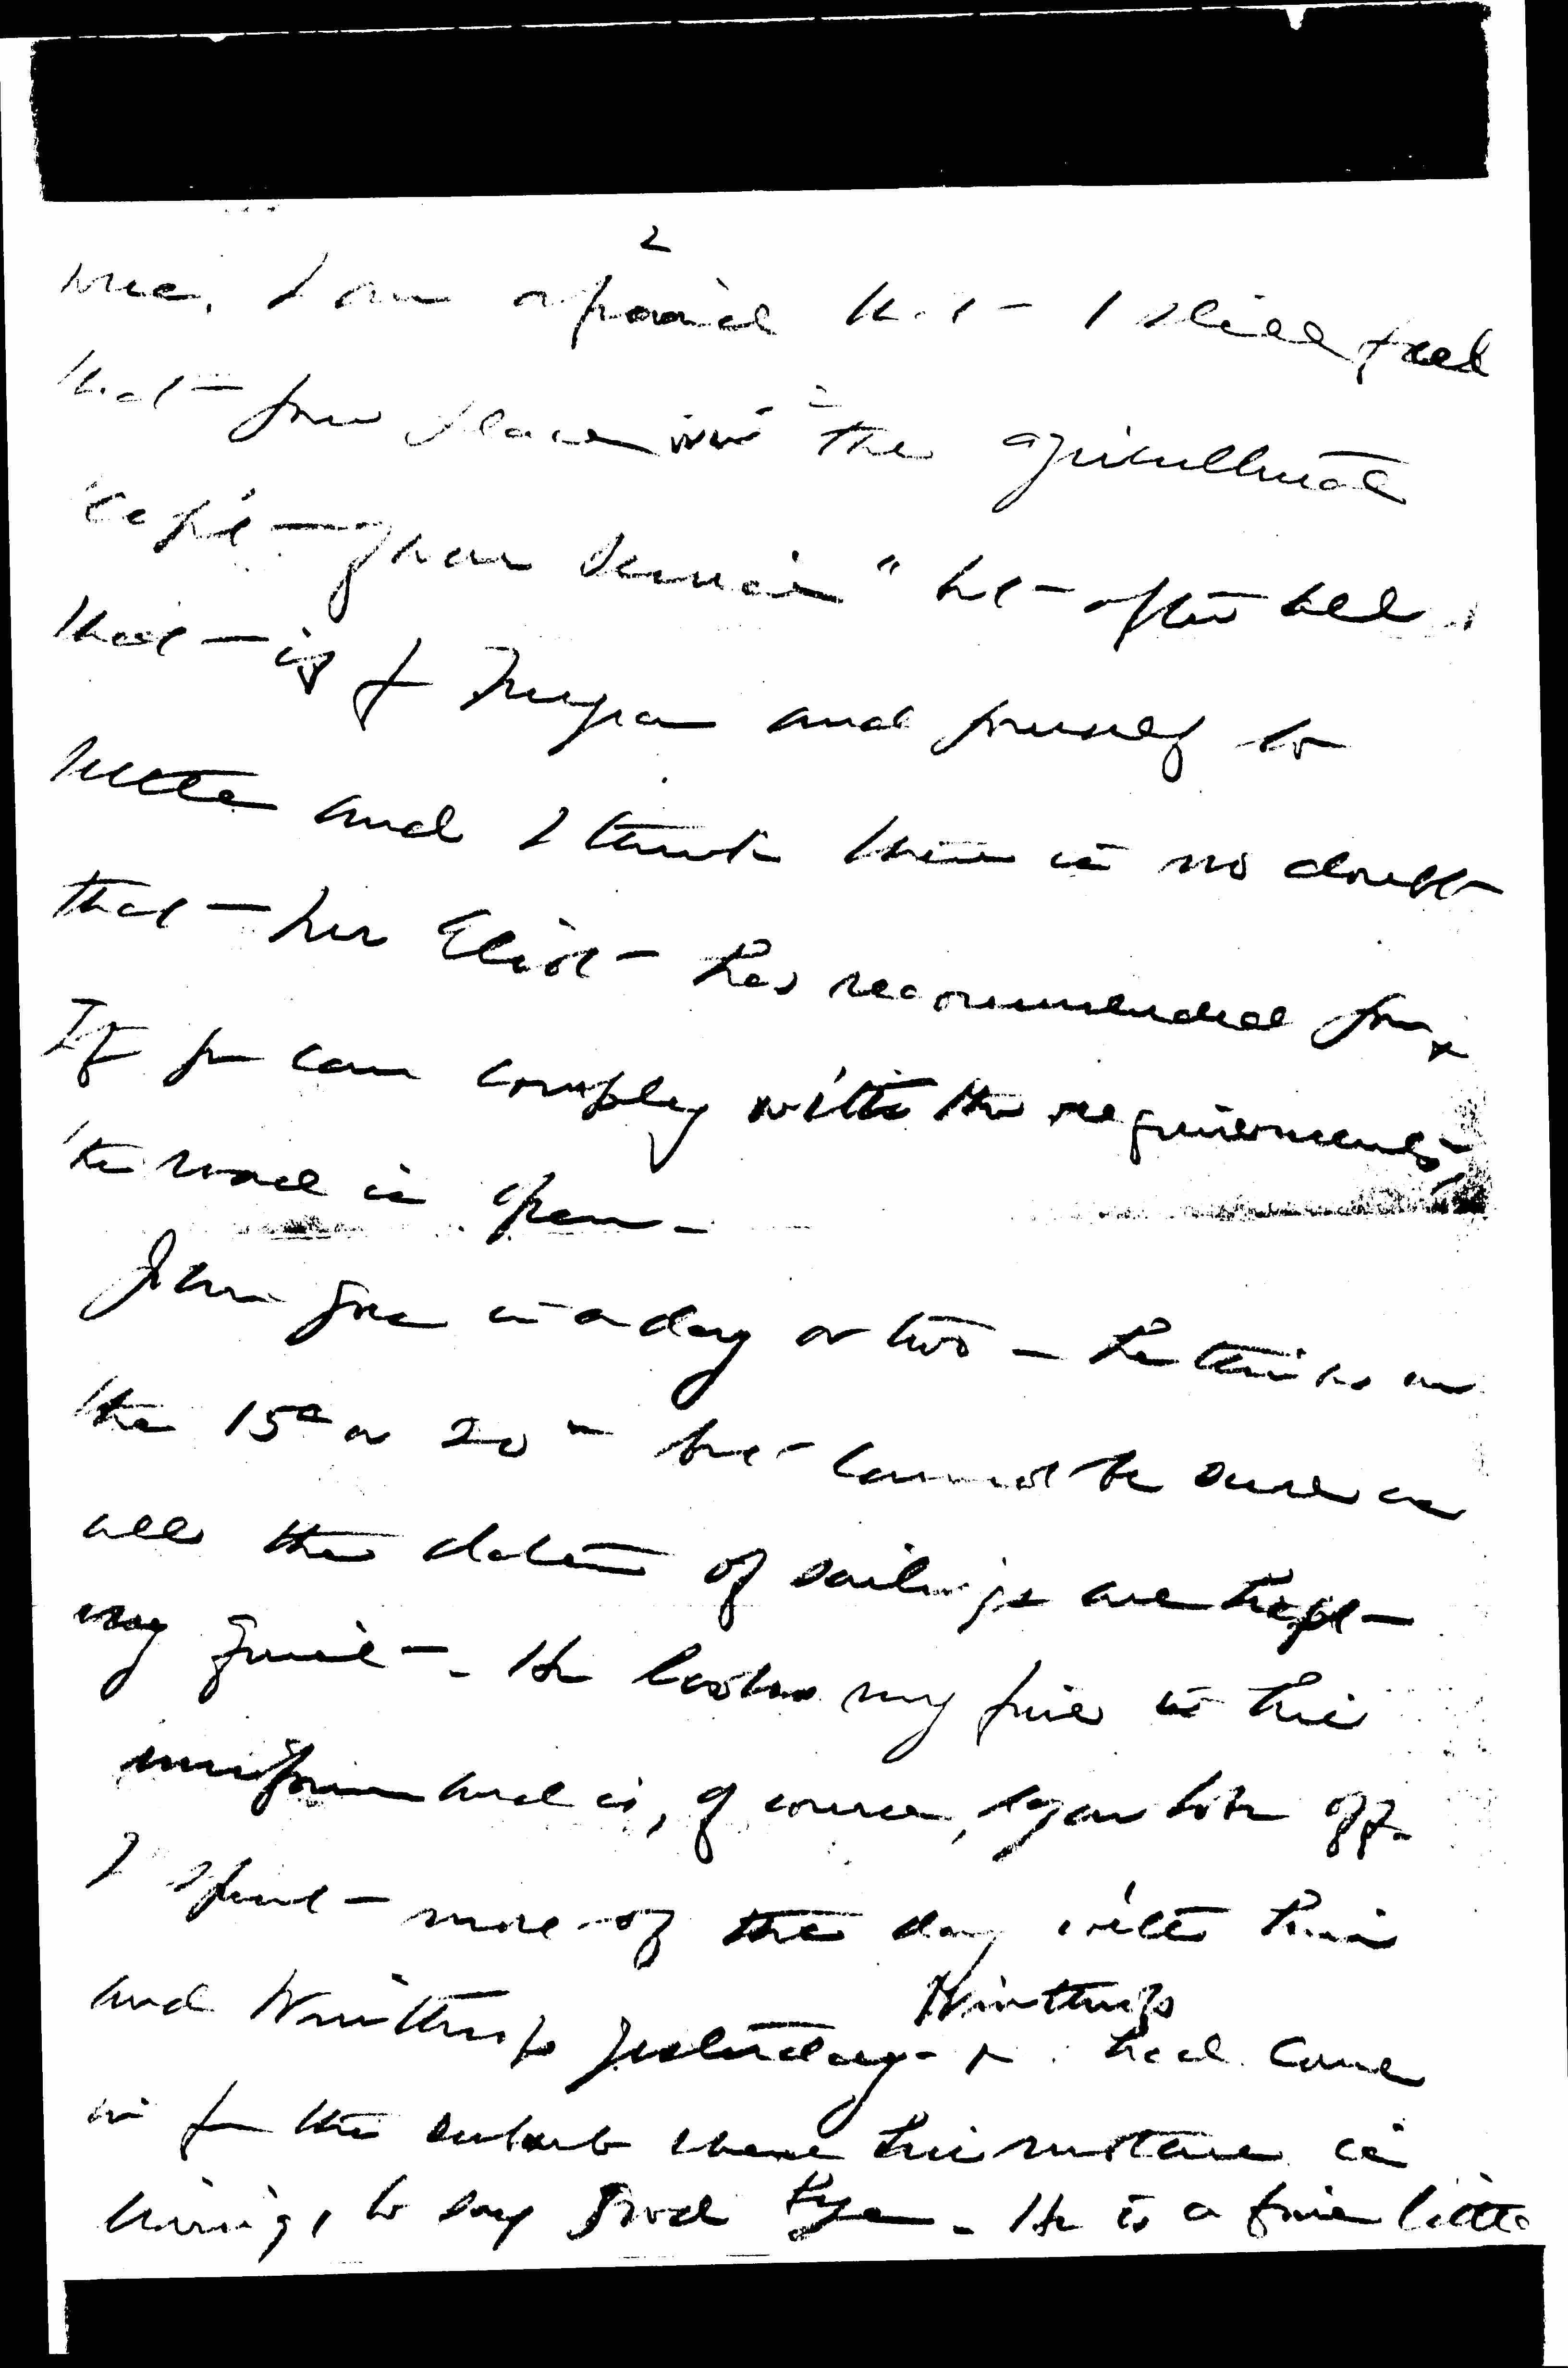 2
me. I am afraid that I still feel
that your place is in the agricultural
that is for and yourself to
settle and I think there is no doubt
that Mr Eliot has recommended you.
If you can comply with the requirements,
the road is open -
John goes in a day or two - he thinks on
the 15th or 20th but cannot be sure as
all the dates of sailings are kept
very quiet -. He looks very fine in his
uniform and is, of course, to take off.
I spent most of the day with him
and Winthrop yesterday - Winthrop had come
in from the suburb where his mother is
living, to say good bye - He is a fine little